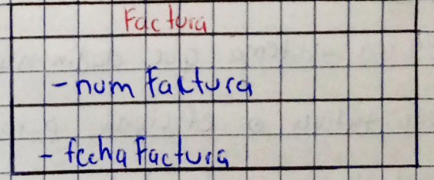 Factura
- num Factura
- fecha Factura